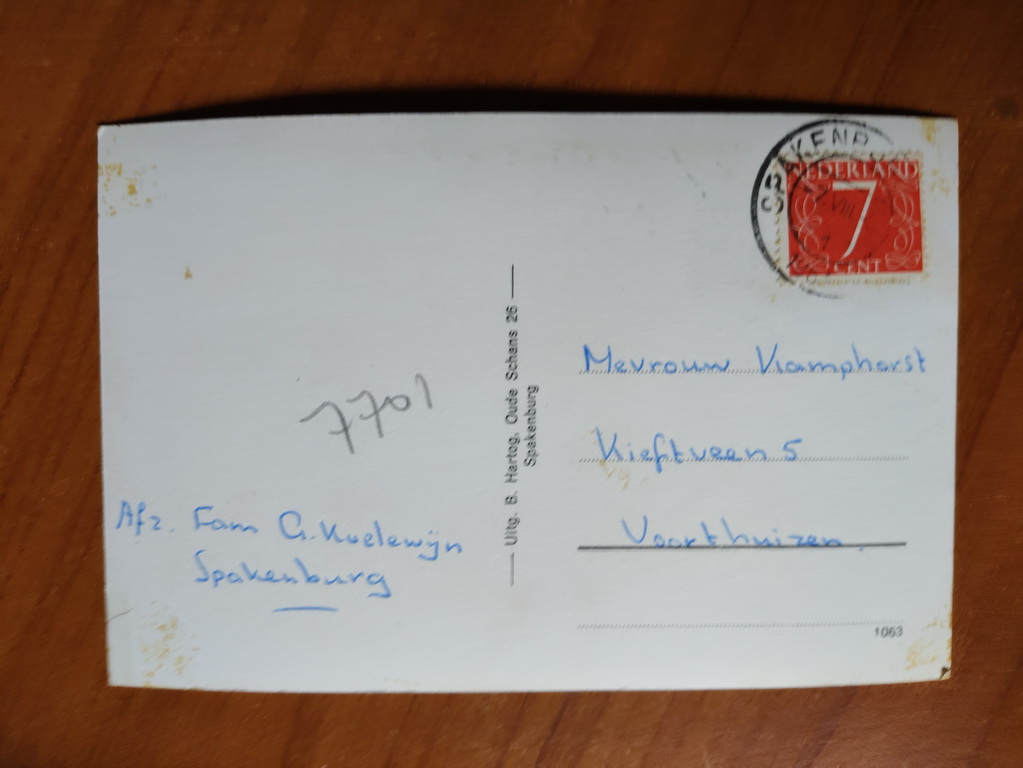 SPAKENB
NEDERLAND
7
CENT
Uitg. B. Hartog, Oude Schans 26
Spakenburg
7701
Afz. Fam G. Koelewijn
Spakenburg
Mevrouw Kamphorst
Kieftveen 5
Voorthuizen.
1063